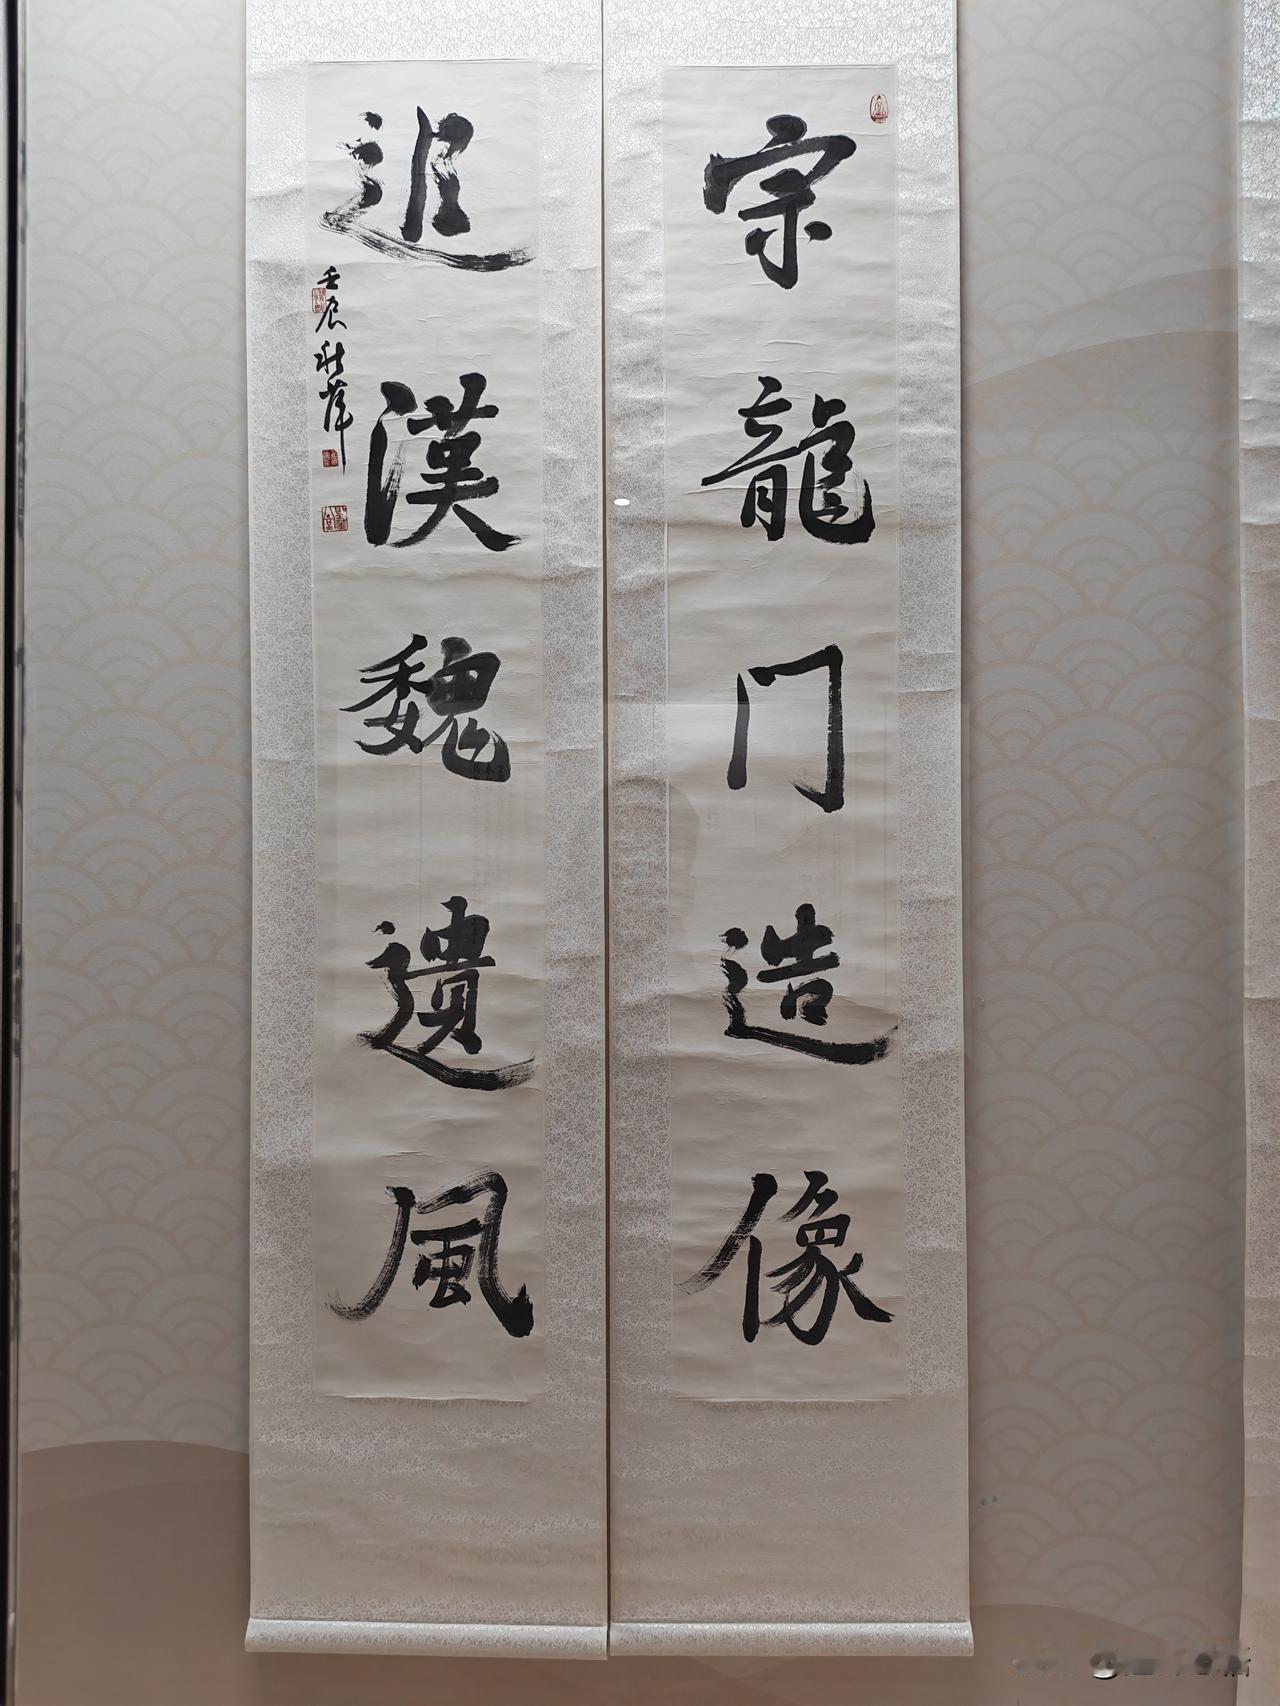 宗龍门造像
追漢魏遺風
壬辰秋肇